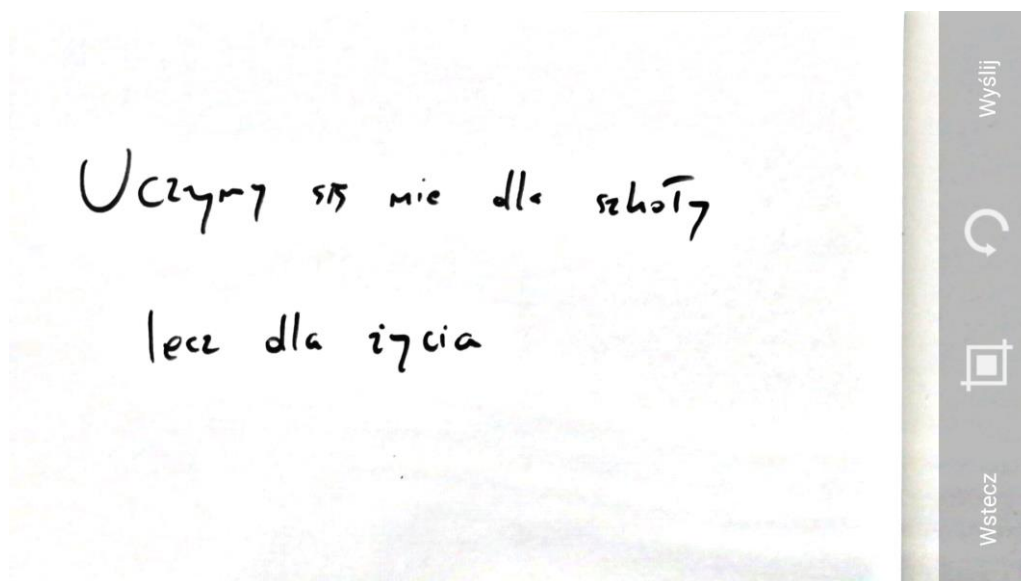 Uczymy się nie dla szkoły
lecz dla życia
Wyślij
Wstecz